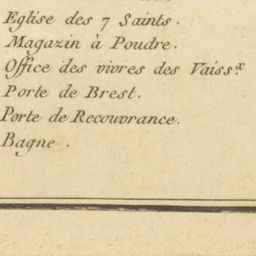 Eglise des 7 Saints.
Magazin à Poudre.
Office des vivres des Vaiss.x
Porte de Brest.
Porte de Recouvrance.
Bagne.